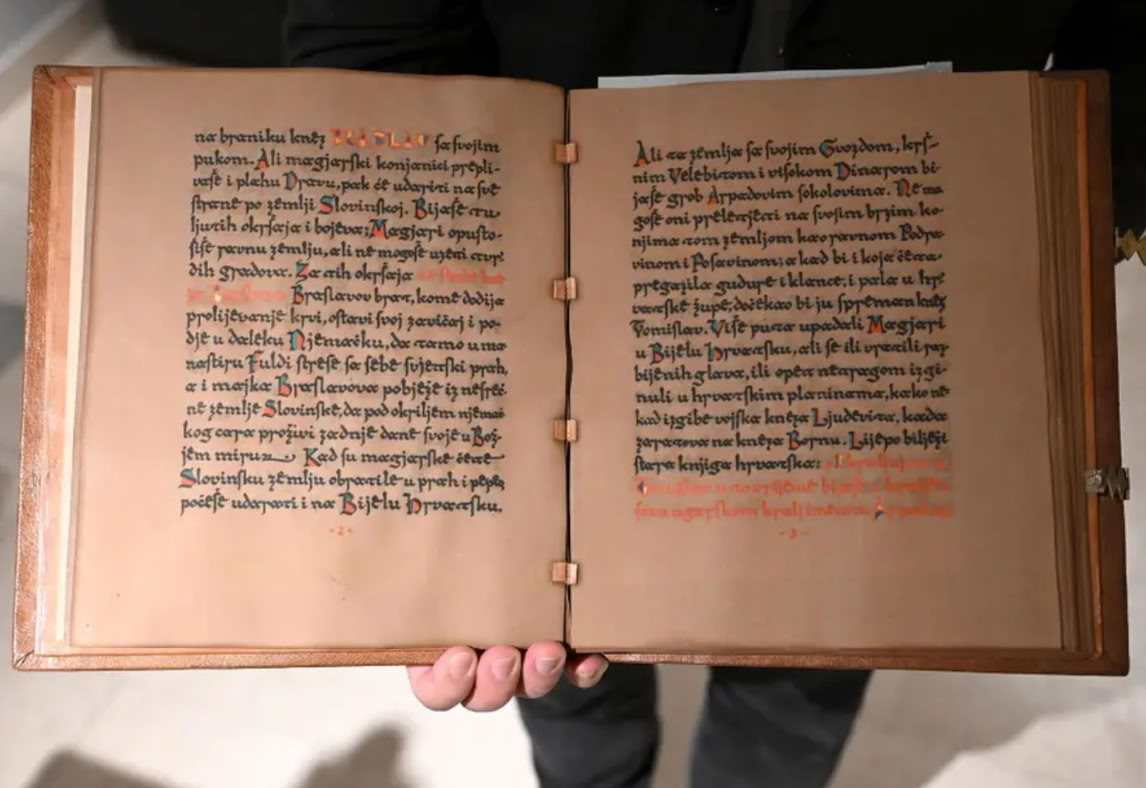 na braniku knez BRASLAV sa svojim
pukom. Ali magjarski konjanici prepli-
vaše i plahu Dravu, pak će udariti na sve
strane po zemlji Slovinskoj. Bijaše tu
ljutih okršaja i bojeva: Magjari opusto-
šiše ravnu zemlju, ali ne mogoše uzeti tvr-
dih gradova. Za tih okršaja
Braslavov brat, kome dodija
prolijevanje krvi, ostavi svoj zavičaj i po-
dje u daleku Njemačku, da tamo u ma
nastiru Fuldi strese sa sebe svjetski prah,
a i majka Braslavova pobježe iz nesreć-
ne zemlje Slovinske, da pod okriljem njemač
kog cara proživi zadnje dane svoje u Bož-
jem miru. Kad su magjarske čete
Slovinsku zemlju obratile u prah i pepeo
počeše udarati i na Bijelu Hrvatsku.
-2-
Ali ta zemlja sa svojim Gvozdom, krš-
nim Velebitom i visokom Dinarom bi-
jaše grob Arpadovim sokolovima. Ne mo
goše oni preletjeti na svojim brzim ko-
njima tom zemljom kao ravnom Podra-
vinom i Posavinom; a kad bi i koja četa
pregazila gudure i klance, i pala u hr-
vatske župe, dočekao bi ju spreman knez
Tomislav. Više puta upadali Magjari
u Bijelu Hrvatsku, ali se ili vratili raz-
bijenih glava, ili opet netragom izgi-
nuli u hrvatskim planinama, kako ne
kad izgibe vojska kneza Ljudevita, kada
zaratova na kneza Bornu. Lijepo bilježi
stara knjiga hrvatska:
u to vrijeme
kralj imenom
-3-